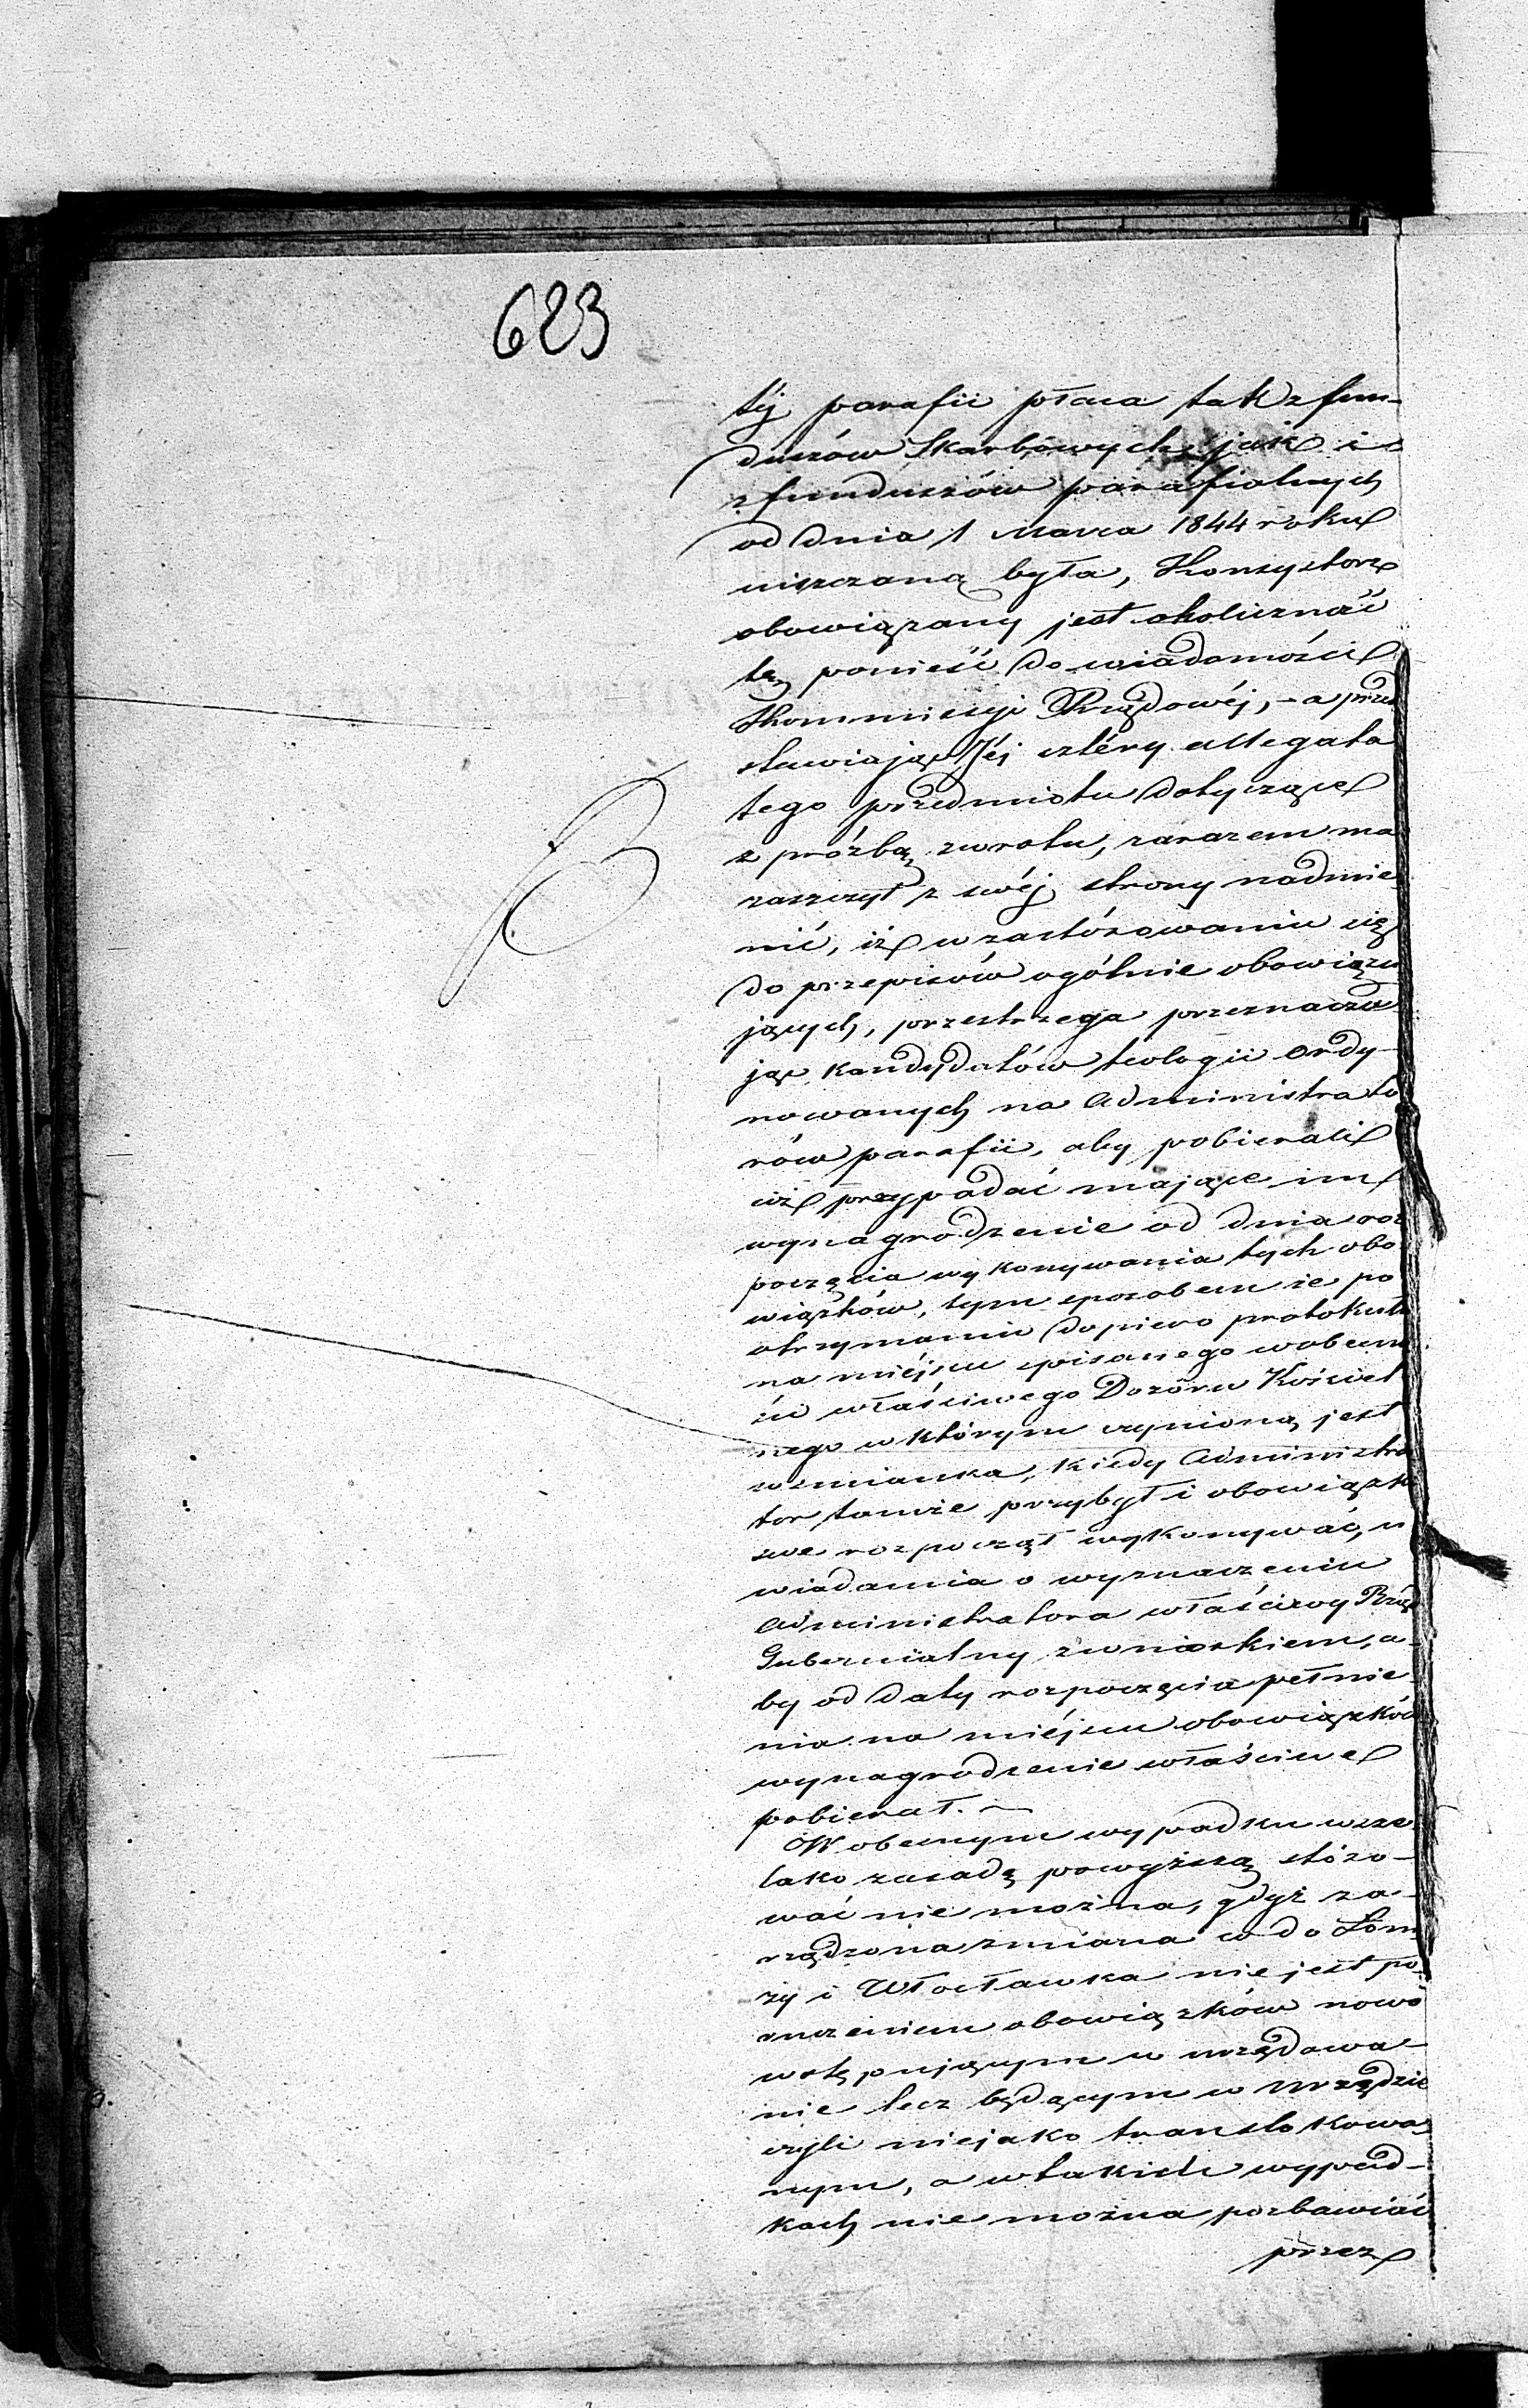 623
téj parafii płaca tak z fun-
duszów Skarbowych jak i
z funduszów parafialnych
od dnia 1 Marca 1844 roku
uiszczaną była, Konsystorz
obowiązany jest okoliczność
tę ponieść do wiadomości
Kommissyi Rządowéj, - a przed
stawiając Jéj cztéry allegata
tego przedmiotu dotyczące
z prośbą zwrotu, zarazem ma
zaszczyt z swéj strony nadmie
nić, iż w zastósowaniu się
do przepisów ogólnie obowiązu
jących, przestrzega przeznacza
jąc kandydatów teologii ordy-
nowanych na Administrato
rów parafii, aby pobierali
iż przypadać mające im
wynagrodzenie od dnia roz
poczęcia wykonywania tych obo
wiązków, tym sposobem że po
otrzymaniu dopiero protokułu
na miéjscu spisanego wobecno
ści właściwego Dozoru Kościel
nego w którym czynioną jest
wzmianka, kiedy Administra
tor tamże przybył i obowiązki
swe rozpoczął wykonywać, u
wiadamia o wyznaczeniu
Administratora właściwy Rząd
Gubernialny z wnioskiem, a-
by od daty rozpoczęcia pełnie
nia na miéjscu obowiązków
wynagrodzenie właściwe
pobierał. -
W obecnym wypadku wsze
lako zasadę powyższą stóso-
wać nie można, gdyż za-
rządzona zmiana co do Łom
ży i Włocławka nie jest po-
ruczeniem obowiązków nowo
wstępującym w urzędowa-
nie lecz będącym w urzędzie
czyli niejako translokowa
nym, a w takich wypad-
kach nie można pozbawiać
przez